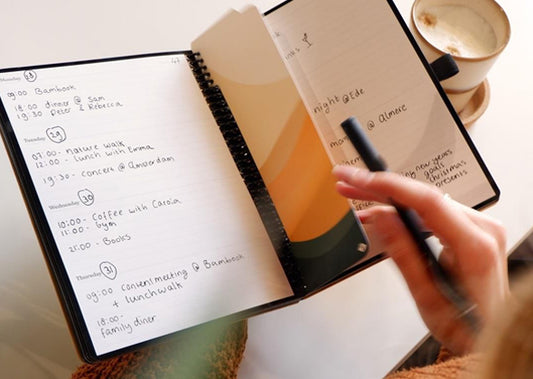 47
Monday 28
09:00 Bambook
18:00 dinner @ Sam
19:30 Peter & Rebecca
Tuesday 29
07:00 - nature walk
12:00 - lunch with Emma
19:30 - concert @ Amsterdam
Wednesday 30
10:00 - Coffee with Carola
11:00 - Gym
21:00 - Books
Thursday 31
09:00 conveni meeting @ Bambook
+ lunchwalk
18:00 -
family diner
night @ Ede
@ Almere
new years
goals
christmas
presents